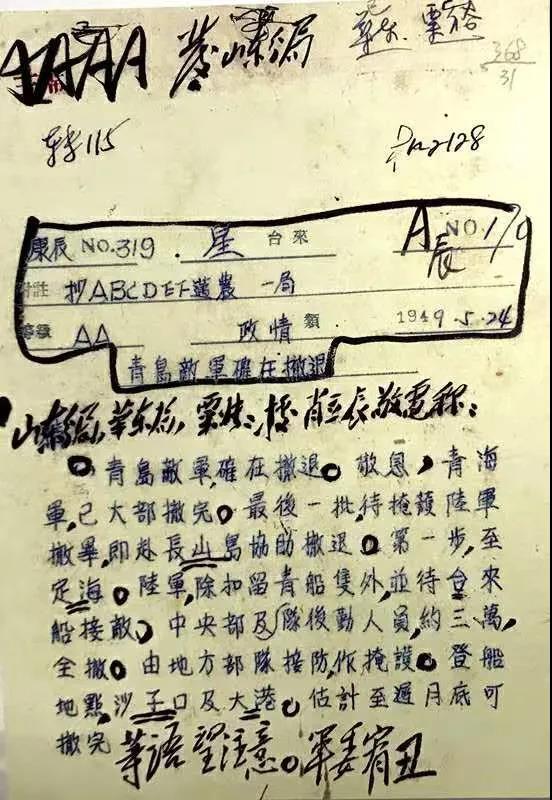 AAAA 发山东分局 华东 粟裕
368
31
转115
康辰 NO.319 星 台來 A辰 NO 1/9
附註 抄ABCDEF送農一局
等級 AA 政情 類 1949.5.24
青島敵軍確在撤退
山東分局,華东局,
青島敵軍,確在撤退。敬息,青海
軍,已大部撤完。最後一批,待掩護陸軍
撤畢,即赴長山島協助撤退。第一步,至
定海。陸軍,除扣留青船隻外,並待台來
船接敵,中央部及隊後勤人員,約三萬,
全撤。由地方部隊接防,作掩護。登船
地點,沙子口及大港。估計至遲月底可
撤完
等語望注意。軍委宥丑